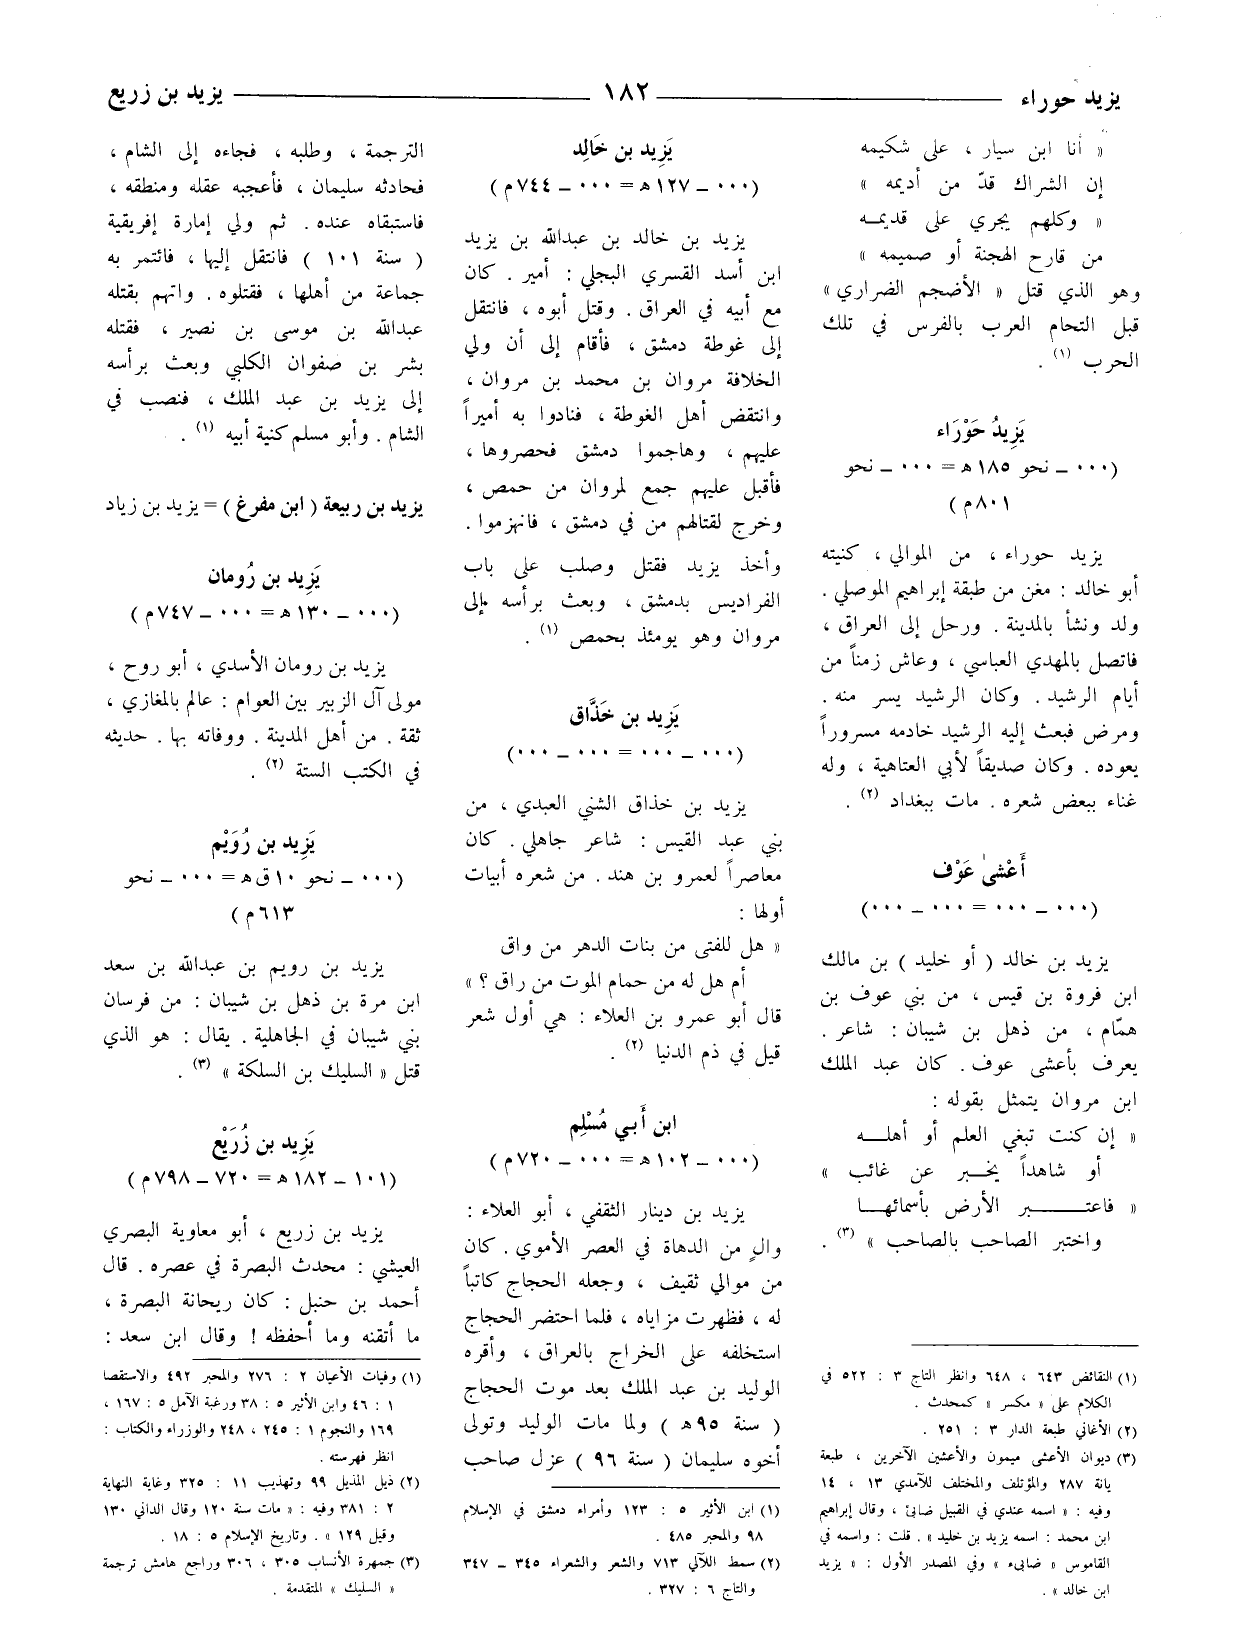 يزيد حوراء ١٨٢ يزيد بن زريع
« أنا ابن سيار ، على شكيمه
إن الشراك قدّ من أديمه »
« وكلهم يجري على قديمـه
من قارح الهجنة أو صميمه »
وهو الذي قتل « الأضجم الضراري »
قبل التحام العرب بالفرس في تلك
الحرب (١) .
يَزِيدُ حَوْرَاء
(٠٠٠ ــ نحو ١٨٥ هـ = ٠٠٠ ــ نحو
٨٠١ م)
يزيد حوراء ، من الموالي ، كنيته
أبو خالد : مغن من طبقة إبراهيم الموصلي .
ولد ونشأ بالمدينة . ورحل إلى العراق ،
فاتصل بالمهدي العباسي ، وعاش زمناً من
أيام الرشيد . وكان الرشيد يسر منه .
ومرض فبعث إليه الرشيد خادمه مسروراً
يعوده . وكان صديقاً لأبي العتاهية ، وله
غناء ببعض شعره . مات ببغداد (٢) .
أَعْشىٰ عَوْف
(٠٠٠ ــ ٠٠٠ = ٠٠٠ ــ ٠٠٠)
يزيد بن خالد ( أو خليد ) بن مالك
ابن فروة بن قيس ، من بني عوف بن
همّام ، من ذهل بن شيبان : شاعر .
يعرف بأعشى عوف . كان عبد الملك
ابن مروان يتمثل بقوله :
« إن كنت تبغي العلم أو أهلـــه
أو شاهداً يخـــبر عن غائب »
« فاعتـــــــبر الأرض بأسمائهــا
واختبر الصاحب بالصاحب » (٣) .
(١) النقائض ٦٤٣ ، ٦٤٨ وانظر التاج ٣ : ٥٢٢ في
الكلام على « مكسر » كمحدث .
(٢) الأغاني طبعة الدار ٣ : ٢٥١ .
(٣) ديوان الأعشى ميمون والأعشين الآخرين ، طبعة
يانة ٢٨٧ والمؤتلف والمختلف للآمدي ١٣ ، ١٤
وفيه : « اسمه عندي في القبيل ضابئ ، وقال إبراهيم
ابن محمد : اسمه يزيد بن خليد » . قلت : واسمه في
القاموس « ضابىء » وفي المصدر الأول : « يزيد
ابن خالد » .
يَزِيد بن خَالِد
(٠٠٠ ــ ١٢٧ هـ = ٠٠٠ ــ ٧٤٤ م)
يزيد بن خالد بن عبدالله بن يزيد
ابن أسد القسري البجلي : أمير . كان
مع أبيه في العراق . وقتل أبوه ، فانتقل
إلى غوطة دمشق ، فأقام إلى أن ولي
الخلافة مروان بن محمد بن مروان ،
وانتقض أهل الغوطة ، فنادوا به أميراً
عليهم ، وهاجموا دمشق فحصروها ،
فأقبل عليهم جمع لمروان من حمص ،
وخرج لقتالهم من في دمشق ، فانهزموا .
وأخذ يزيد فقتل وصلب على باب
الفراديس بدمشق ، وبعث برأسه إلى
مروان وهو يومئذ بحمص (١) .
يَزِيد بن خَذَّاق
(٠٠٠ ــ ٠٠٠ = ٠٠٠ ــ ٠٠٠)
يزيد بن خذاق الشني العبدي ، من
بني عبد القيس : شاعر جاهلي . كان
معاصراً لعمرو بن هند . من شعره أبيات
أولها :
« هل للفتى من بنات الدهر من واق
أم هل له من حمام الموت من راق ؟ »
قال أبو عمرو بن العلاء : هي أول شعر
قيل في ذم الدنيا (٢) .
ابن أَبي مُسْلِم
(٠٠٠ ــ ١٠٢ هـ = ٠٠٠ ــ ٧٢٠ م)
يزيد بن دينار الثقفي ، أبو العلاء :
والٍ من الدهاة في العصر الأموي . كان
من موالي ثقيف ، وجعله الحجاج كاتباً
له ، فظهرت مزاياه ، فلما احتضر الحجاج
استخلفه على الخراج بالعراق ، وأقره
الوليد بن عبد الملك بعد موت الحجاج
( سنة ٩٥ هـ ) ولما مات الوليد وتولى
أخوه سليمان ( سنة ٩٦ ) عزل صاحب
(١) ابن الأثير ٥ : ١٢٣ وأمراء دمشق في الإسلام
٩٨ والمحبر ٤٨٥ .
(٢) سمط اللآلي ٧١٣ والشعر والشعراء ٣٤٥ ــ ٣٤٧
والتاج ٦ : ٣٢٧ .
الترجمة ، وطلبه ، فجاءه إلى الشام ،
فحادثه سليمان ، فأعجبه عقله ومنطقه ،
فاستبقاه عنده . ثم ولي إمارة إفريقية
( سنة ١٠١ ) فانتقل إليها ، فائتمر به
جماعة من أهلها ، فقتلوه . واتهم بقتله
عبدالله بن موسى بن نصير ، فقتله
بشر بن صفوان الكلبي وبعث برأسه
إلى يزيد بن عبد الملك ، فنصب في
الشام . وأبو مسلم كنية أبيه (١) .
يزيد بن ربيعة ( ابن مفرغ ) = يزيد بن زياد
يَزِيد بن رُومان
(٠٠٠ ــ ١٣٠ هـ = ٠٠٠ ــ ٧٤٧ م)
يزيد بن رومان الأسدي ، أبو روح ،
مولى آل الزبير بين العوام : عالم بالمغازي ،
ثقة . من أهل المدينة . ووفاته بها . حديثه
في الكتب الستة (٢) .
يَزِيد بن رُوَيْم
(٠٠٠ ــ نحو ١٠ ق هـ = ٠٠٠ ــ نحو
٦١٣ م)
يزيد بن رويم بن عبدالله بن سعد
ابن مرة بن ذهل بن شيبان : من فرسان
بني شيبان في الجاهلية . يقال : هو الذي
قتل « السليك بن السلكة » (٣) .
يَزِيد بن زُرَيْع
(١٠١ ــ ١٨٢ هـ = ٧٢٠ ــ ٧٩٨ م)
يزيد بن زريع ، أبو معاوية البصري
العيشي : محدث البصرة في عصره . قال
أحمد بن حنبل : كان ريحانة البصرة ،
ما أتقنه وما أحفظه ! وقال ابن سعد :
(١) وفيات الأعيان ٢ : ٢٧٦ والمحبر ٤٩٢ والاستقصا
١ : ٤٦ وابن الأثير ٥ : ٣٨ ورغبة الآمل ٥ : ١٦٧ ،
١٦٩ والنجوم ١ : ٢٤٥ ، ٢٤٨ والوزراء والكتاب :
انظر فهرسته .
(٢) ذيل المذيل ٩٩ وتهذيب ١١ : ٣٢٥ وغاية النهاية
٢ : ٣٨١ وفيه : « مات سنة ١٢٠ وقال الداني ١٣٠
وقيل ١٢٩ » . وتاريخ الإسلام ٥ : ١٨ .
(٣) جمهرة الأنساب ٣٠٥ ، ٣٠٦ وراجع هامش ترجمة
« السليك » المتقدمة .